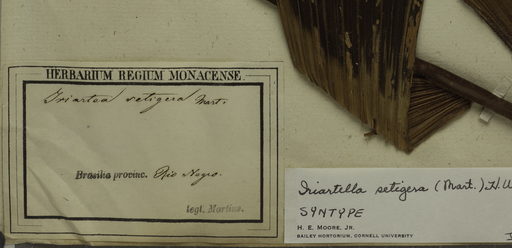 HERBARIUM REGIUM MONACENSE
Iriartea setigera Mart.
Brasilia provinc. Rio Negro.
legt. Martius.
Iriartella setigera (Mart.) H.
SYNTYPE
H. E. MOORE, JR.
BAILEY HORTORIUM, CORNELL UNIVERSITY